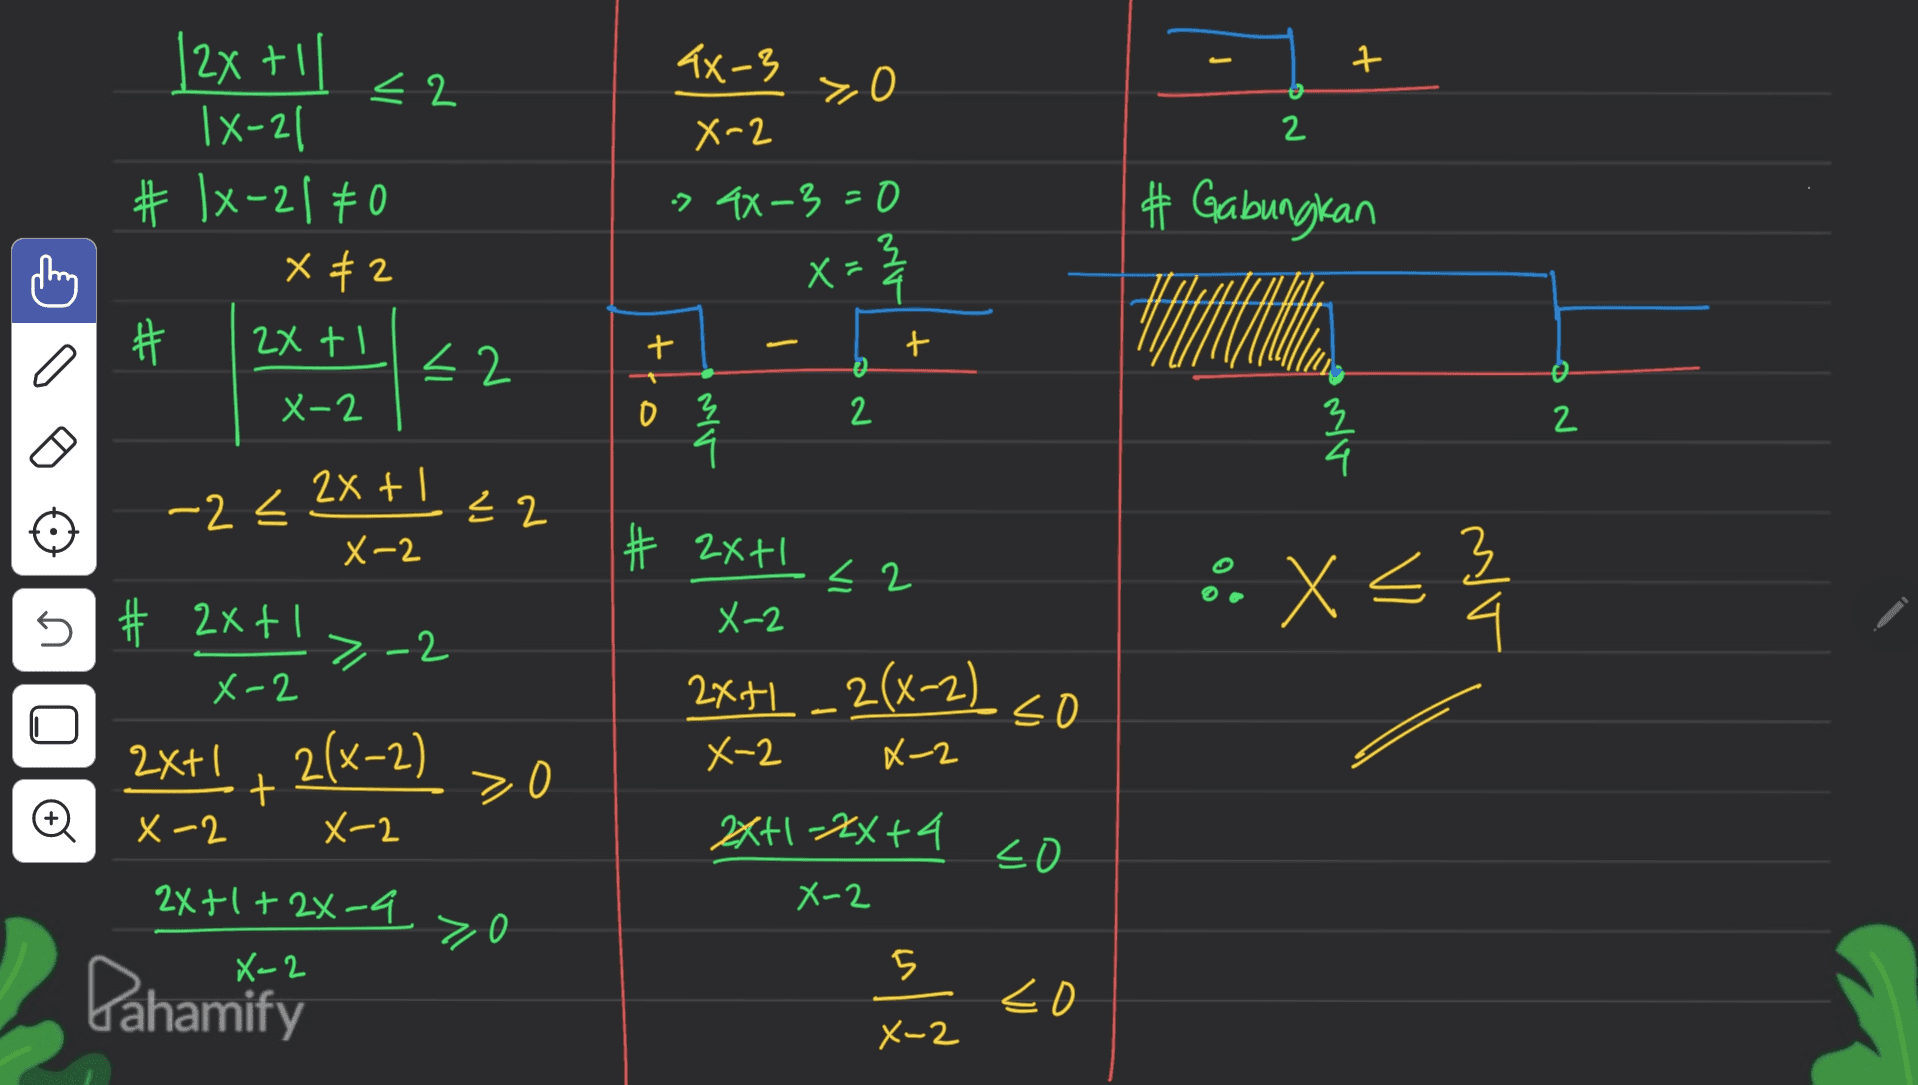 |2x + 1| / |x - 2| ≤ 2
# |x - 2| ≠ 0
x ≠ 2
# | (2x + 1) / (x - 2) | ≤ 2
-2 ≤ (2x + 1) / (x - 2) ≤ 2
# (2x + 1) / (x - 2) ≥ -2
(2x + 1) / (x - 2) + 2(x - 2) / (x - 2) ≥ 0
(2x + 1 + 2x - 4) / (x - 2) ≥ 0
(4x - 3) / (x - 2) ≥ 0
-> 4x - 3 = 0
x = 3/4
+ - +
0 3/4 2
# (2x + 1) / (x - 2) ≤ 2
(2x + 1) / (x - 2) - 2(x - 2) / (x - 2) ≤ 0
(2x + 1 - 2x + 4) / (x - 2) ≤ 0
5 / (x - 2) ≤ 0
- +
2
# Gabungkan
3/4 2
∴ x ≤ 3/4
Pahamify